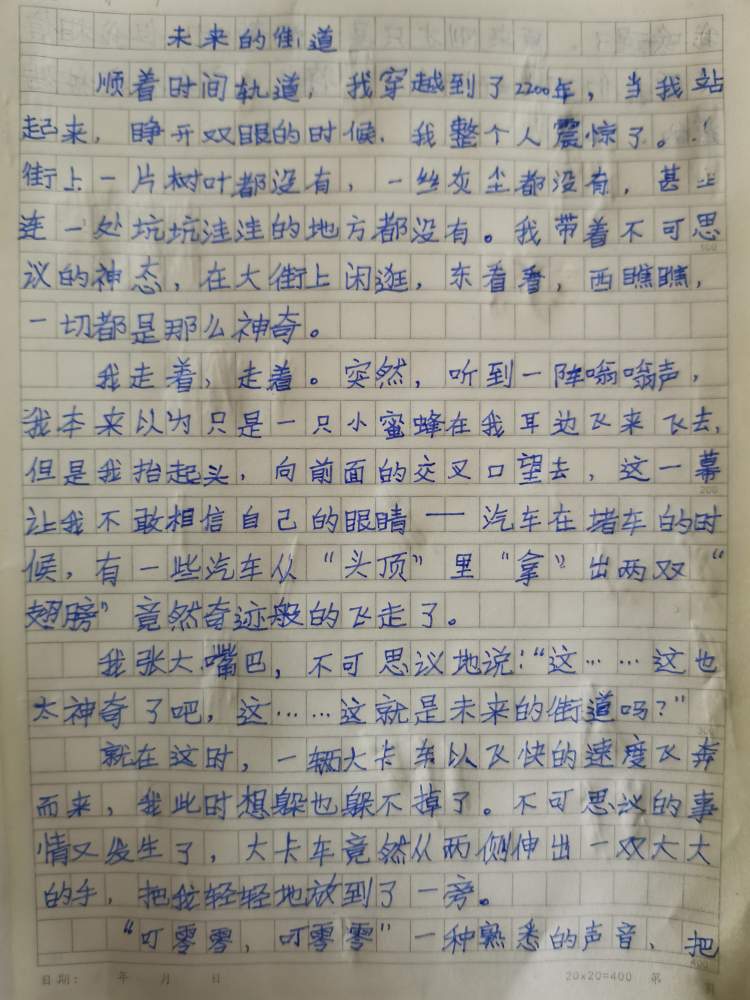 未来的街道
顺着时间轨道，我穿越到了2200年，当我站
起来，睁开双眼的时候，我整个人震惊了。
街上一片树叶都没有，一丝灰尘都没有，甚至
连一处坑坑洼洼的地方都没有。我带着不可思
议的神态，在大街上闲逛，东看看，西瞧瞧，
一切都是那么神奇。
我走着，走着。突然，听到一阵嗡嗡声，
我本来以为只是一只小蜜蜂在我耳边飞来飞去，
但是我抬起头，向前面的交叉口望去，这一幕
200
让我不敢相信自己的眼睛——汽车在堵车的时
候，有一些汽车从“头顶”里“拿”出两双“
翅膀”竟然奇迹般的飞走了。
我张大嘴巴，不可思议地说：“这……这也
太神奇了吧，这……这就是未来的街道吗？”
300
就在这时，一辆大卡车以飞快的速度飞奔
而来，我此时想躲也躲不掉了。不可思议的事
情又发生了，大卡车竟然从两侧伸出一双大大
的手，把我轻轻地放到了一旁。
“叮零零，叮零零”一种熟悉的声音，把
400
日期： 年 月 日 20×20=400 第 页